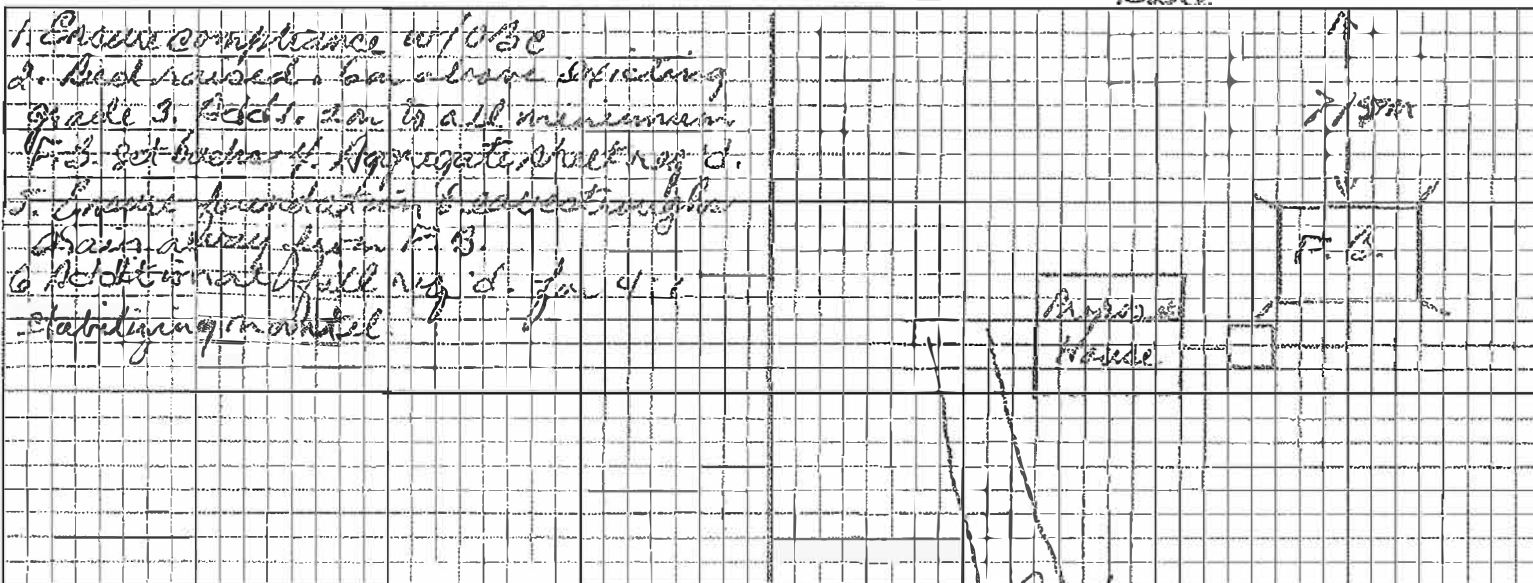 1. Ensure compliance w/ OBC
2. Bed raised . 6m above existing
grade 3. Add 1. 2m to all minimum
F.B. setbacks 4. Aggregate sheet req'd.
5. Ensure foundation & eavestroughs
drain away from F.B.
6 Additional fill req'd. for 4:1
stabilizing mantel
>15m
F.B.
House